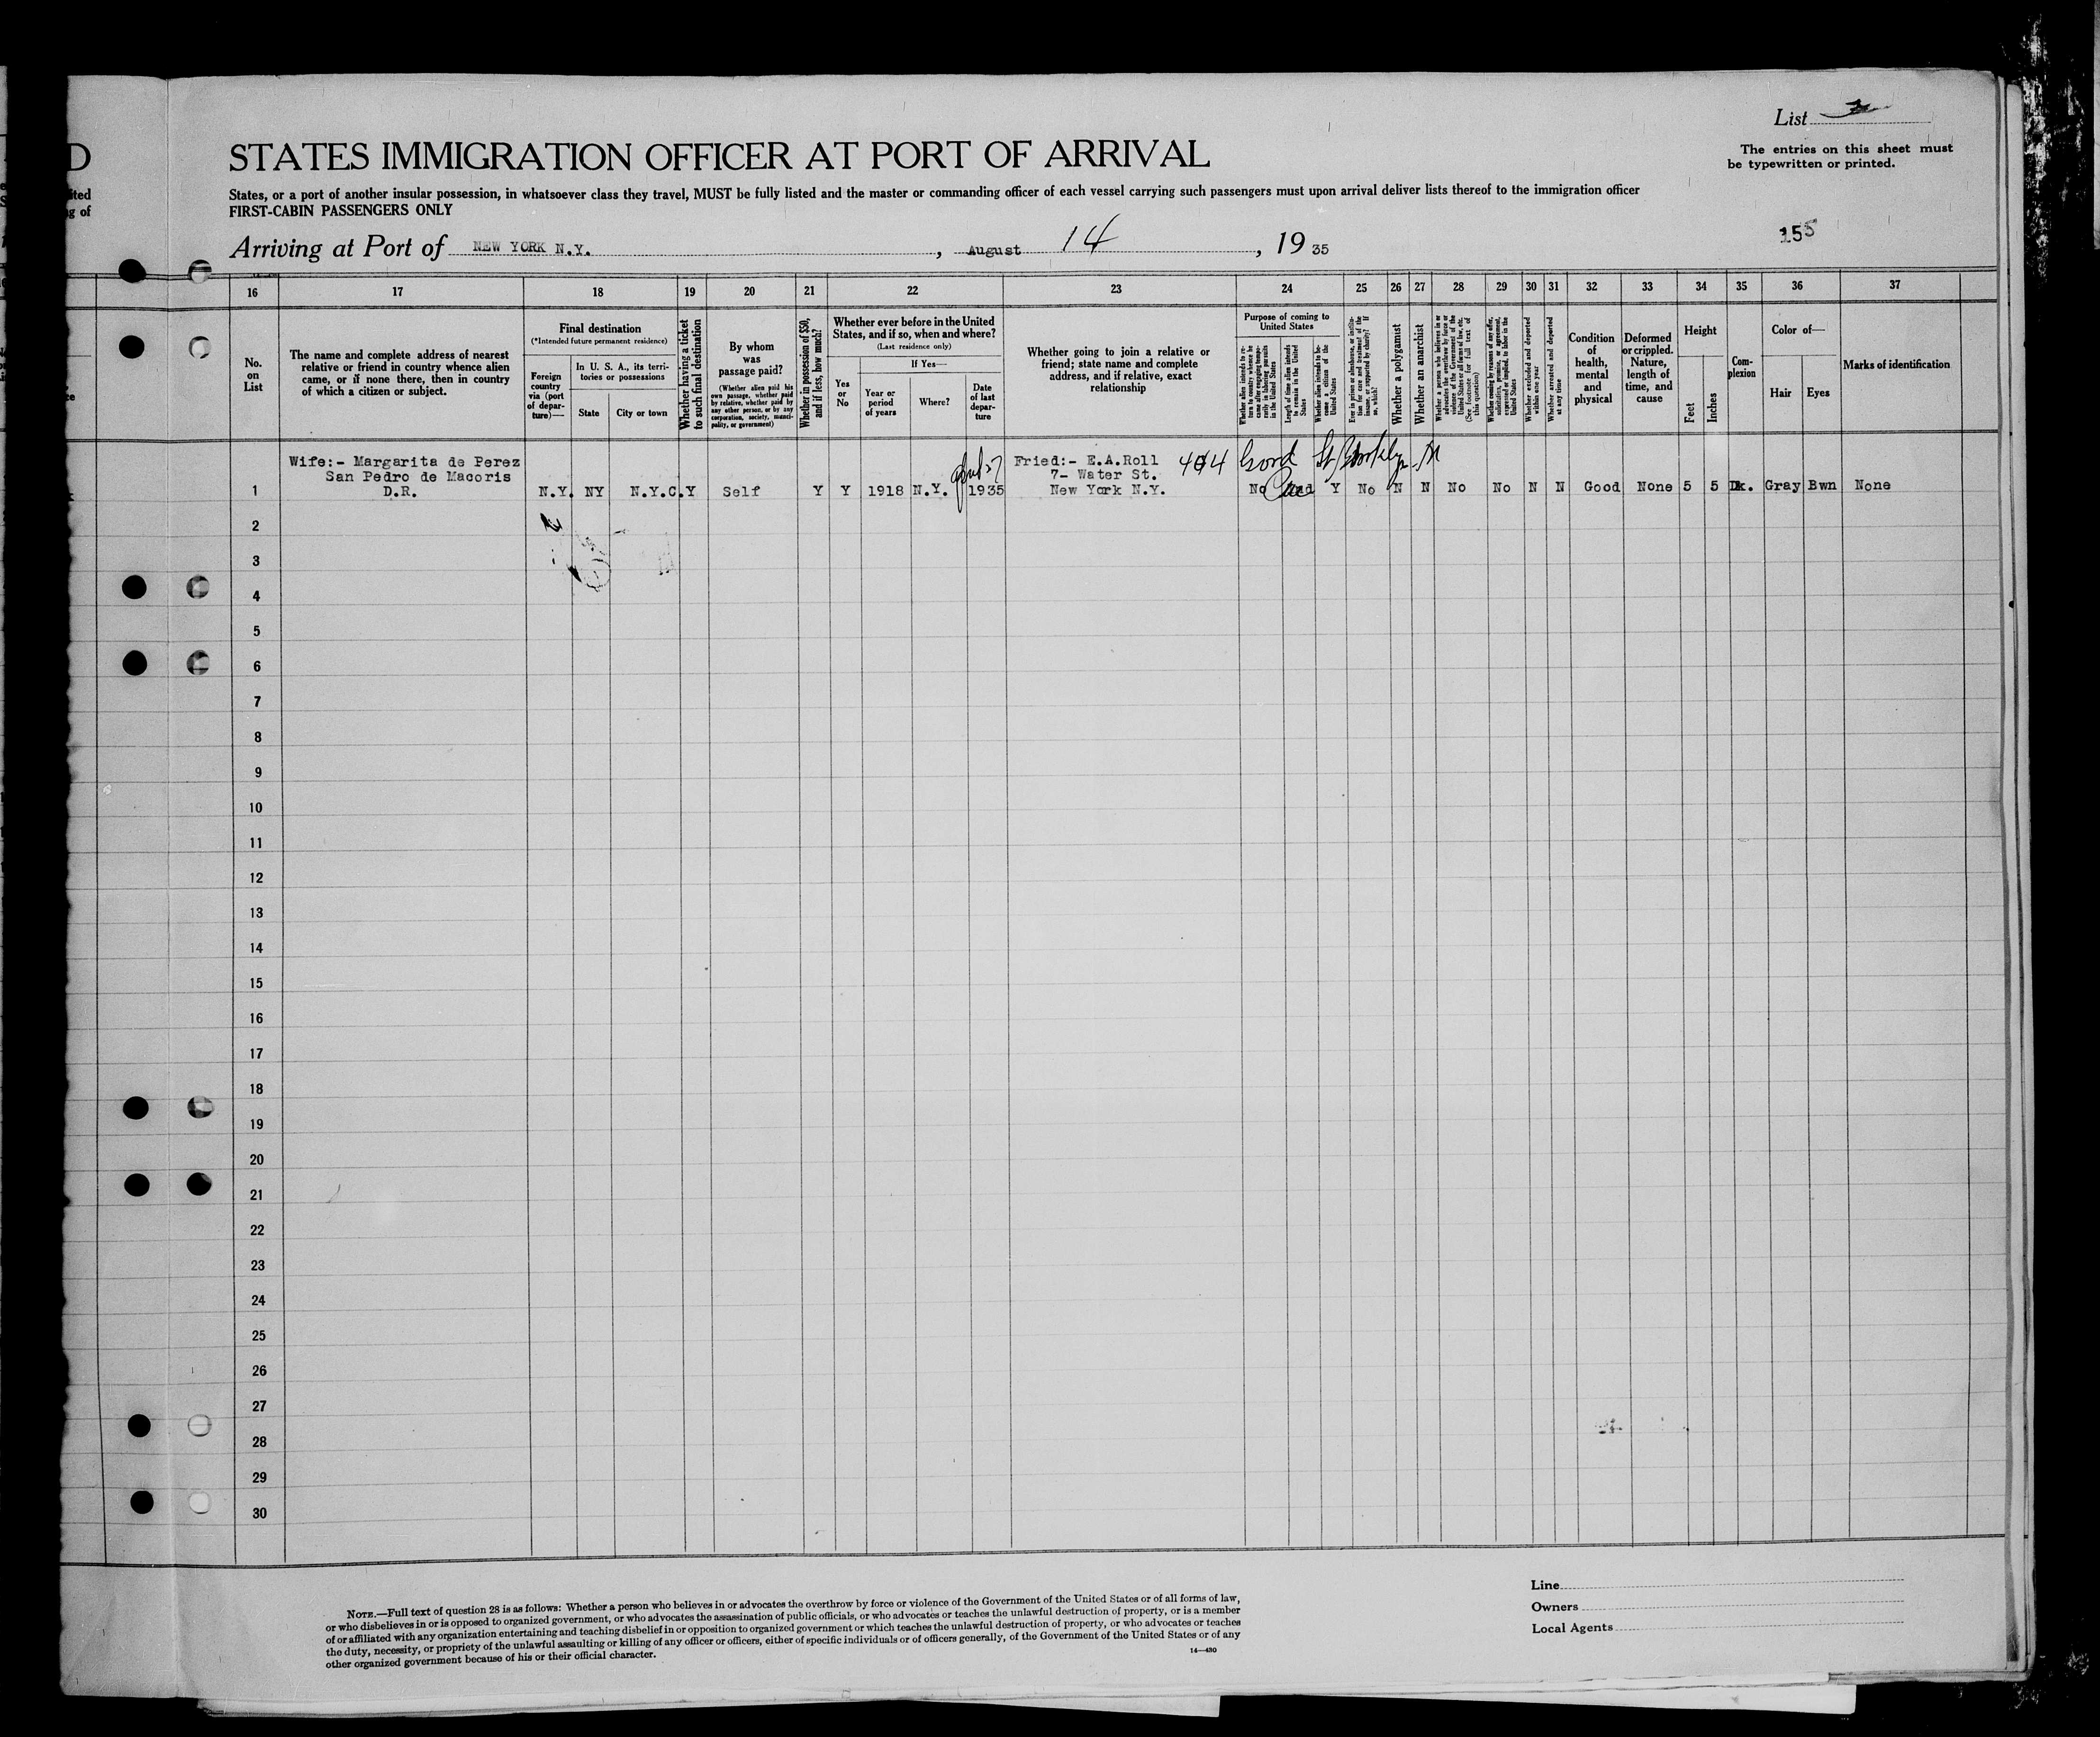 D
List
The entries on this sheet must
be typewritten or printed.
STATES IMMIGRATION OFFICER AT PORT OF ARRIVAL
States, or a port of another insular possession, in whatsoever class they travel, MUST be fully listed and the master or commanding officer of each vessel carrying such passengers must upon arrival deliver lists thereof to the immigration officer
FIRST-CABIN PASSENGERS ONLY
Arriving at Port of NEW YORK N.Y. , August 14 , 19 35
155
16 17 18 19 20 21 22 23 24 25 26 27 28 29 30 31 32 33 34 35 36 37
No.
on
List
The name and complete address of nearest
relative or friend in country whence alien
came, or if none there, then in country
of which a citizen or subject.
Final destination
(*Intended future permanent residence)
Foreign
country
via (port
of depar-
ture)—
In U. S. A., its terri-
tories or possessions
State
City or town
Whether having a ticket
to such final destination
By whom
was
passage paid?
(Whether alien paid his
own passage, whether paid
by relative, whether paid by
any other person, or by any
corporation, society, munici-
pality, or government)
Whether in possession of $50,
and if less, how much?
Whether ever before in the United
States, and if so, when and where?
(Last residence only)
Yes
or
No
If Yes—
Year or
period
of years
Where?
Date
of last
depar-
ture
Whether going to join a relative or
friend; state name and complete
address, and if relative, exact
relationship
Purpose of coming to
United States
Whether alien intends to re-
turn to country whence he
came after engaging tempo-
rarily in laboring pursuits
in the United States
Length of time alien intends
to remain in the United
States
Whether alien intends to be-
come a citizen of the
United States
Ever in prison or almshouse, or institu-
tion for care and treatment of the
insane, or supported by charity? If
so, which?
Whether a polygamist
Whether an anarchist
Whether a person who believes in or
advocates the overthrow by force or
violence of the Government of the
United States or all forms of law, etc.
(See footnote for full text of
this question)
Whether coming by reasons of any offer,
solicitation, promise, or agreement,
expressed or implied, to labor in the
United States
Whether excluded and deported
within one year
Whether arrested and deported
at any time
Condition
of
health,
mental
and
physical
Deformed
or crippled.
Nature,
length of
time, and
cause
Height
Feet
Inches
Com-
plexion
Color of—
Hair
Eyes
Marks of identification
Wife:- Margarita de Perez
San Pedro de Macoris
D.R.
Fried:- E.A.Roll
7- Water St.
New York N.Y.
1 N.Y. NY N.Y.C. Y Self Y Y 1918 N.Y. 1935 No Y No N N No No N N Good None 5 5 Dk. Gray Bwn None
2
3
4
5
6
7
8
9
10
11
12
13
14
15
16
17
18
19
20
21
22
23
24
25
26
27
28
29
30
NOTE.—Full text of question 28 is as follows: Whether a person who believes in or advocates the overthrow by force or violence of the Government of the United States or of all forms of law,
or who disbelieves in or is opposed to organized government, or who advocates the assassination of public officials, or who advocates or teaches the unlawful destruction of property, or is a member
of or affiliated with any organization entertaining and teaching disbelief in or opposition to organized government or which teaches the unlawful destruction of property, or who advocates or teaches
the duty, necessity, or propriety of the unlawful assaulting or killing of any officer or officers, either of specific individuals or of officers generally, of the Government of the United States or of any
other organized government because of his or their official character.
14—430
Line
Owners
Local Agents